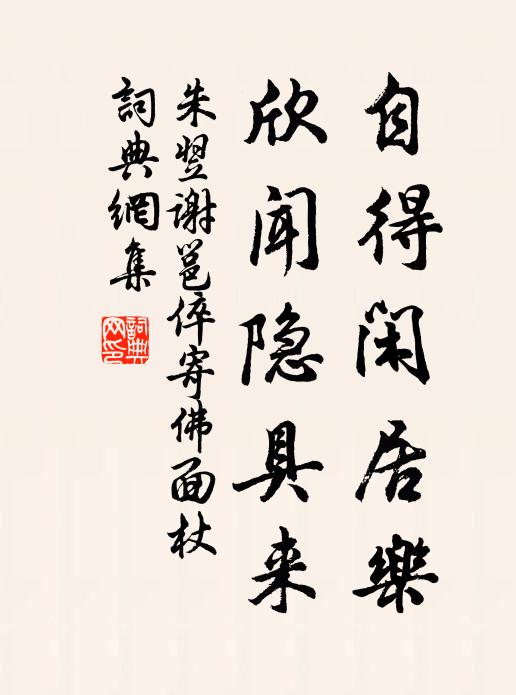 自得闲居樂
欣闻隐具来
朱翌谢邕倅寄佛面杖
詞典網集
詞典网印